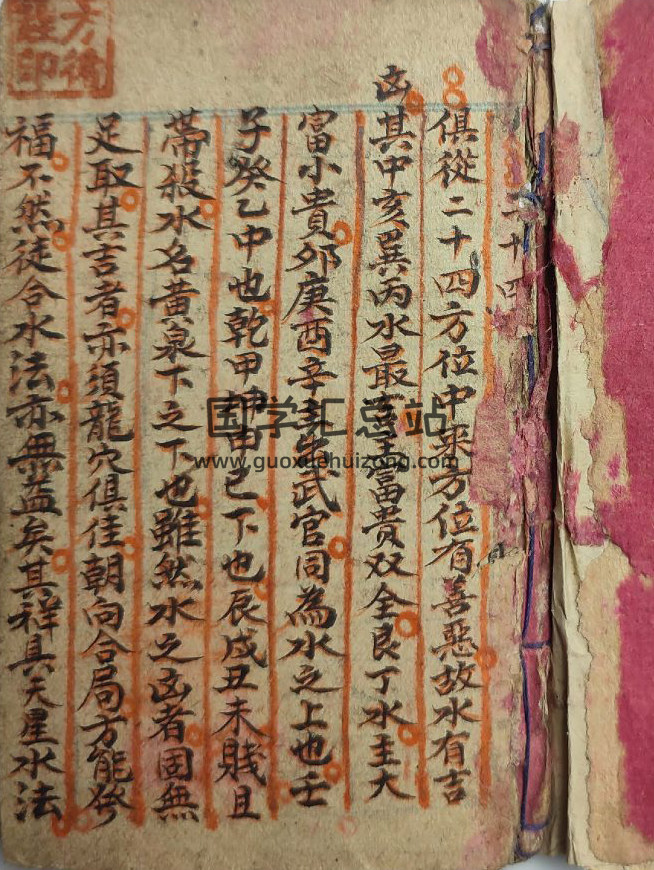 二十四
俱從二十四方位中來方位有善惡故水有吉
凶其中亥巽丙水最吉主富貴双全艮丁水主大
富小貴夘庚酉辛武官同為水之上也壬
子癸乙中也乾甲坤申巳下也辰戌丑未賤且
帶殺水名黄泉下之下也雖然水之凶者固無
足取其吉者亦須龍穴俱佳朝向合局方能發
福不然徒合水法亦無益矣其祥具天星水法
国学汇总站
www.guoxuehuizong.com